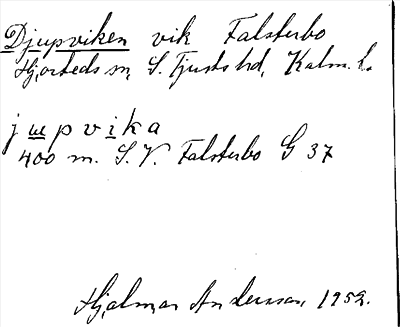 Djupviken vik Falsterbo
Hjorteds sn, S. Tjusts hd, Kalm. l.
jɯpvika
400 m. S.V. Falsterbo G 37
Hjalmar Andersson, 1952.